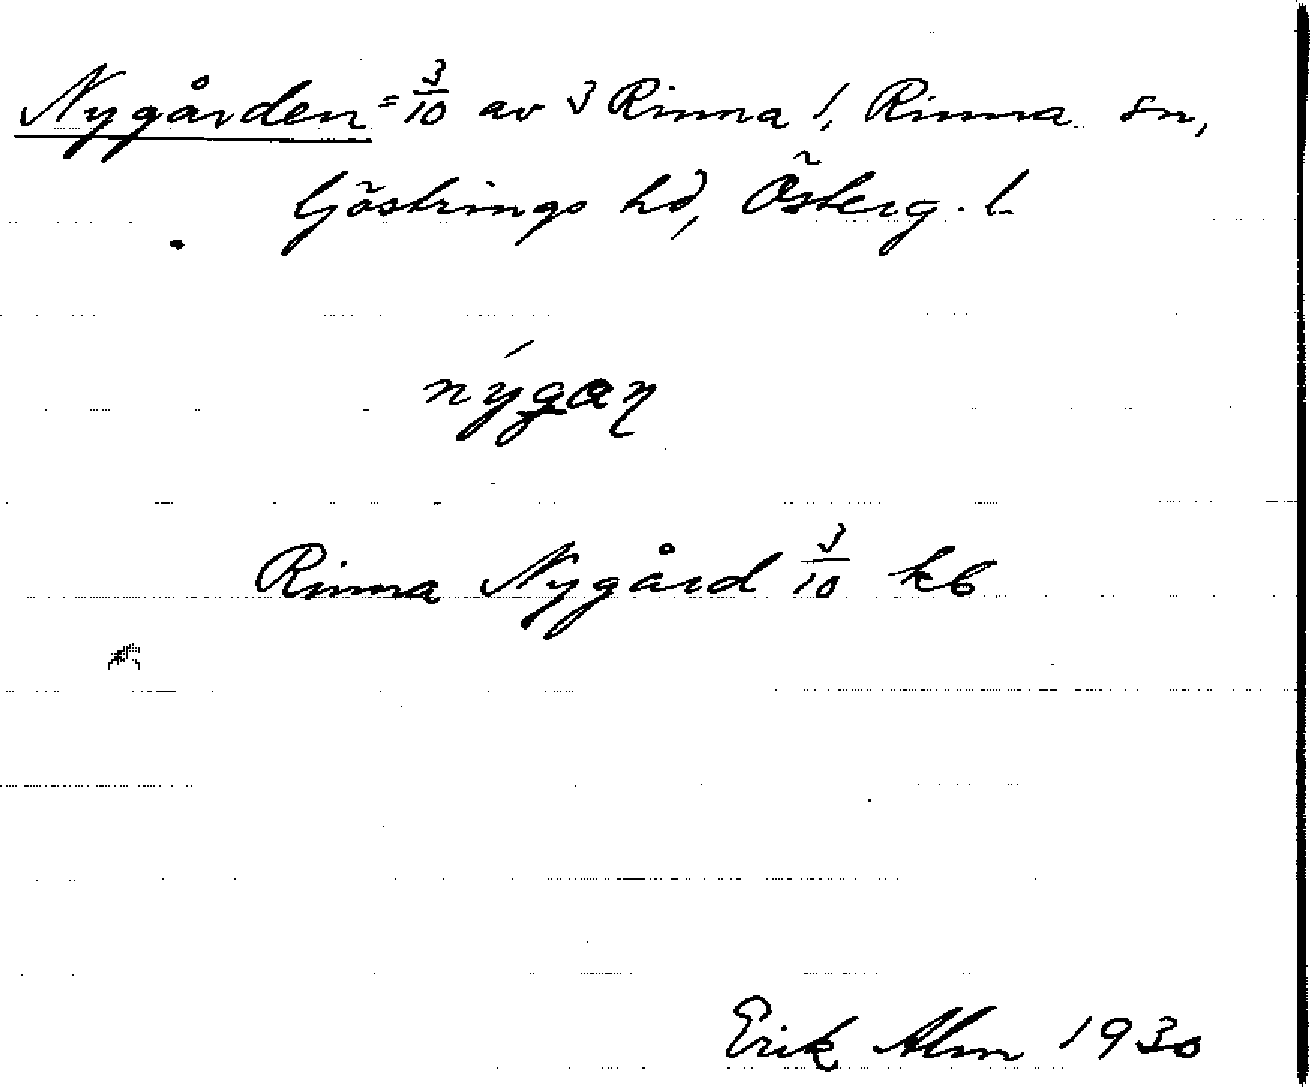 Nygården = 3/10 av 3 Rinna 1, Rinna sn,
Göstrings hd, Österg. l.
nýgaɳ
Rinna Nygård 3/10 kb
Erik Alm 1930